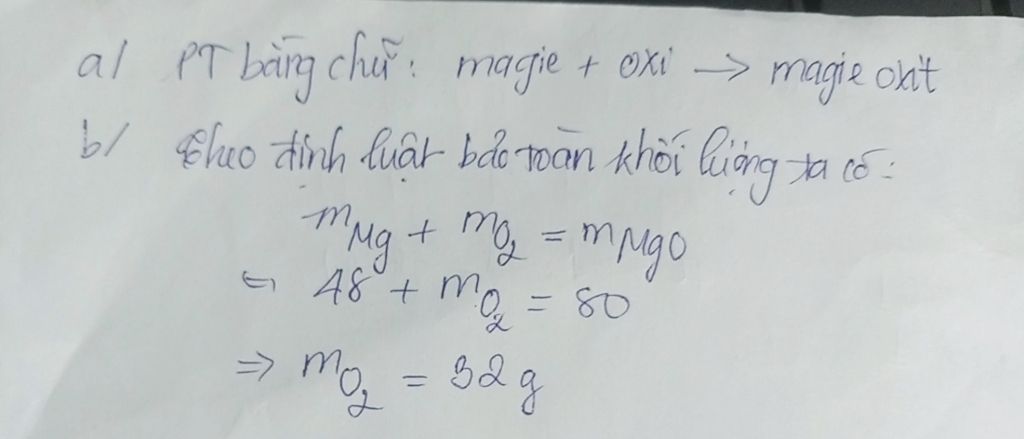 a/ PT bằng chữ: magie + oxi → magie oxit
b/ Theo định luật bảo toàn khối lượng ta có:
mMg + mO₂ = mMgO
⇔ 48 + mO₂ = 80
⇒ mO₂ = 32g